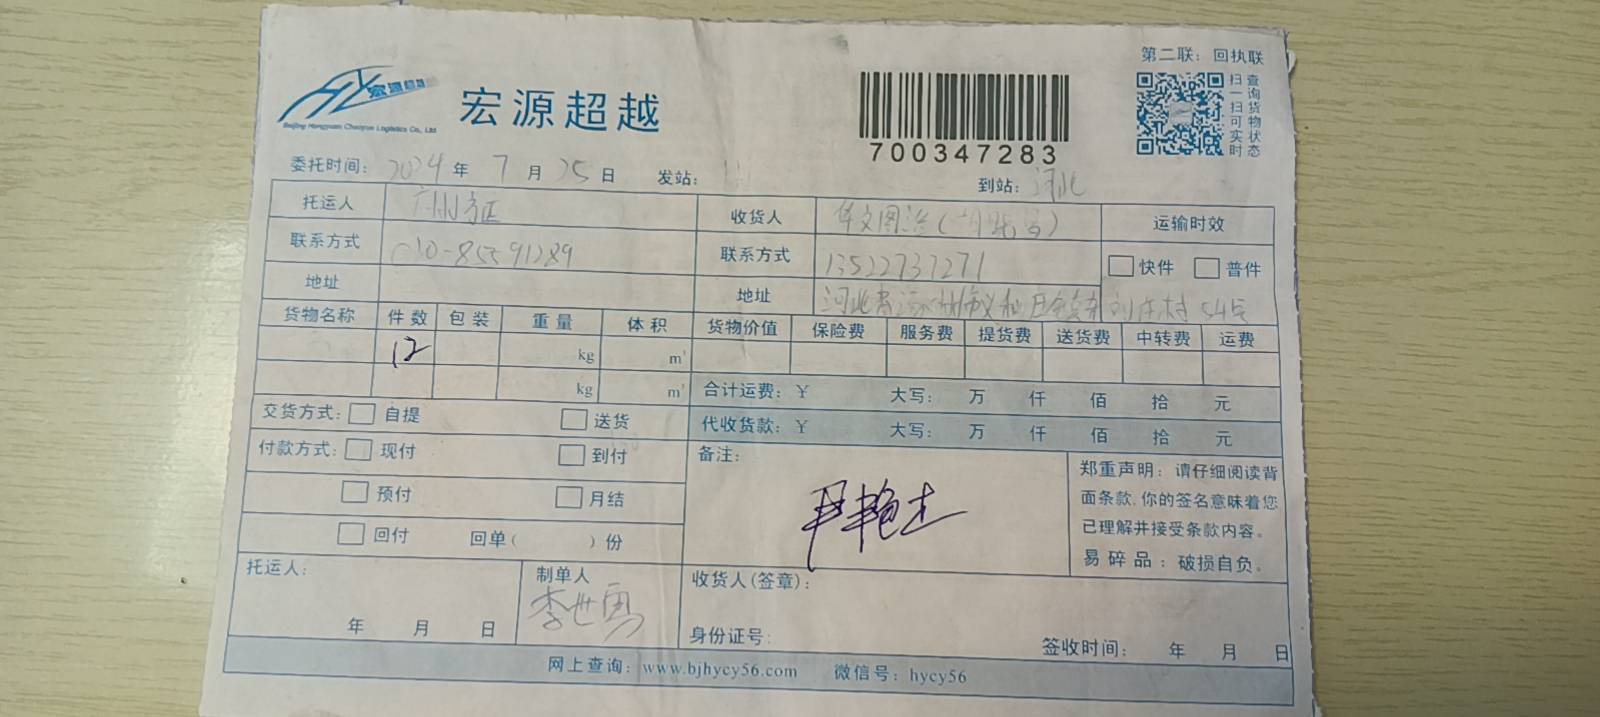 第二联：回执联
宏源超越
Beijing Hongyuan Chaoyue Logistics Co., Ltd
宏源超越
700347283
扫一扫可实时
查询货物状态
委托时间：2024年7月25日 发站： 到站：河北
托运人 收货人 运输时效
联系方式 010-85591289 联系方式 13522737271 快件 普件
地址 地址 河北省涿州市义和庄 54号
货物名称 件数 包装 重量 体积 货物价值 保险费 服务费 提货费 送货费 中转费 运费
12 kg m³
kg m³ 合计运费：￥ 大写： 万 仟 佰 拾 元
交货方式： 自提 送货 代收货款：￥ 大写： 万 仟 佰 拾 元
付款方式： 现付 到付 备注：
预付 月结
回付 回单( )份
郑重声明：请仔细阅读背
面条款，你的签名意味着您
已理解并接受条款内容。
易碎品：破损自负。
托运人： 制单人 收货人(签章)：
李世勇
年 月 日 身份证号： 签收时间： 年 月 日
网上查询：www.bjhycy56.com 微信号：hycy56